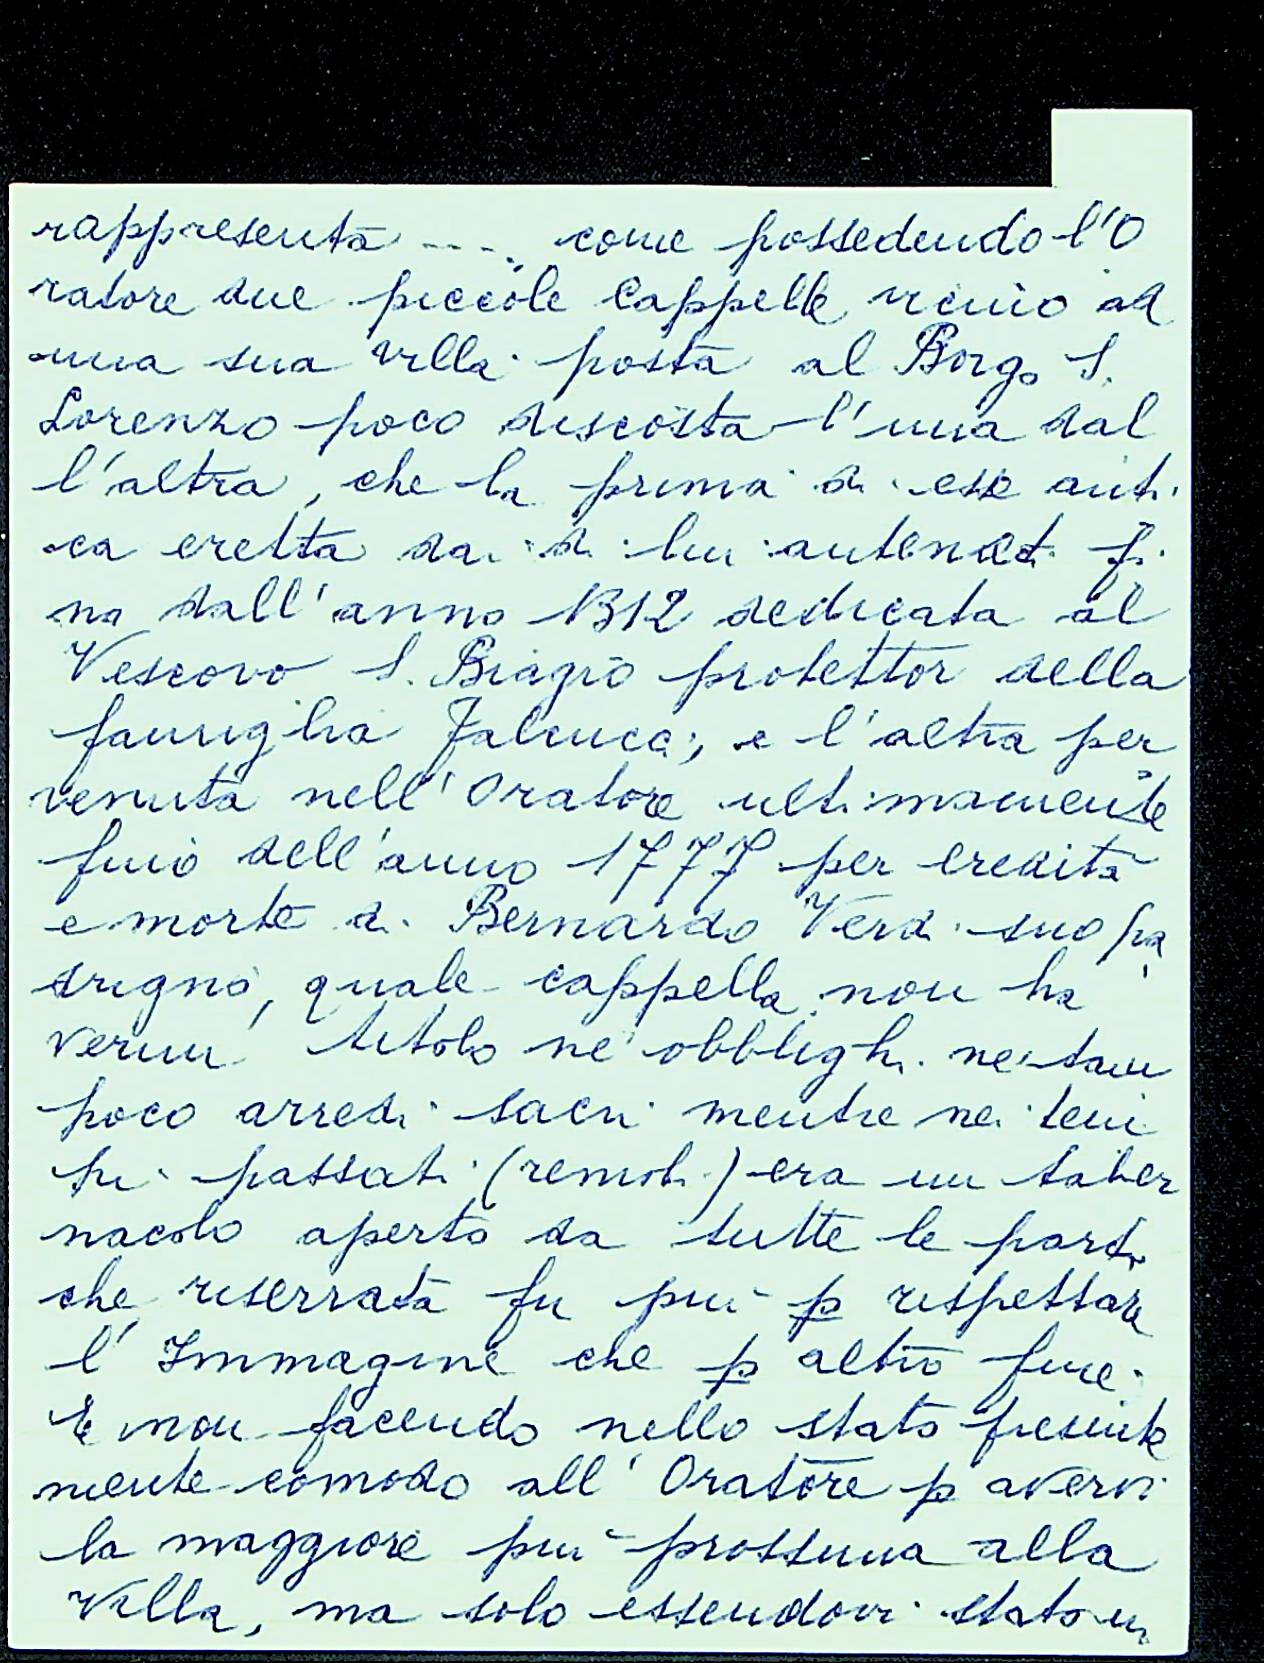 rappresenta ---. come possedendo l'O
ratore due piccole Cappelle vicino ad
una sua villa posta al Borgo S.
Lorenzo poco discosta l'una dal
l'altra, che la prima di esse anti
ca eretta dai di lui antenati fi
no dall'anno 1312 dedicata al
Vescovo S. Biagio protettor della
famiglia Falcucci, e l'altra per
venuta nell'Oratore ultimamente
fino dell'anno 1777 per eredità
e morte di Bernardo Verdi suo pa
drigno, quale cappella non ha
verun titolo nè obblighi nè tam
poco arredi sacri mentre nei tem
pi passati (remoti) era un taber
nacolo aperto da tutte le parti
che riserrata fu più p rispettare
l'Immagine che p altro fine.
E non facendo nello stato presente
mente comodo all'Oratore p avervi
la maggiore più prossima alla
Villa, ma solo essendovi stato in